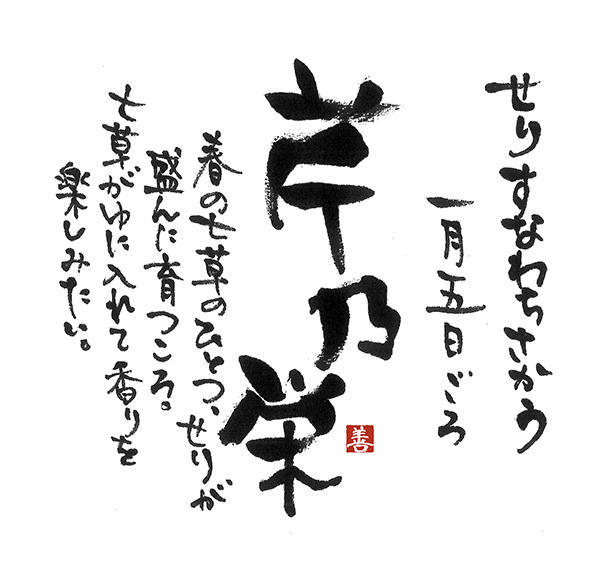 せりすなわちさかう
一月五日ごろ
芹乃栄
善
春の七草のひとつ、せりが
盛んに育つころ。
七草がゆに入れて香りを
楽しみたい。